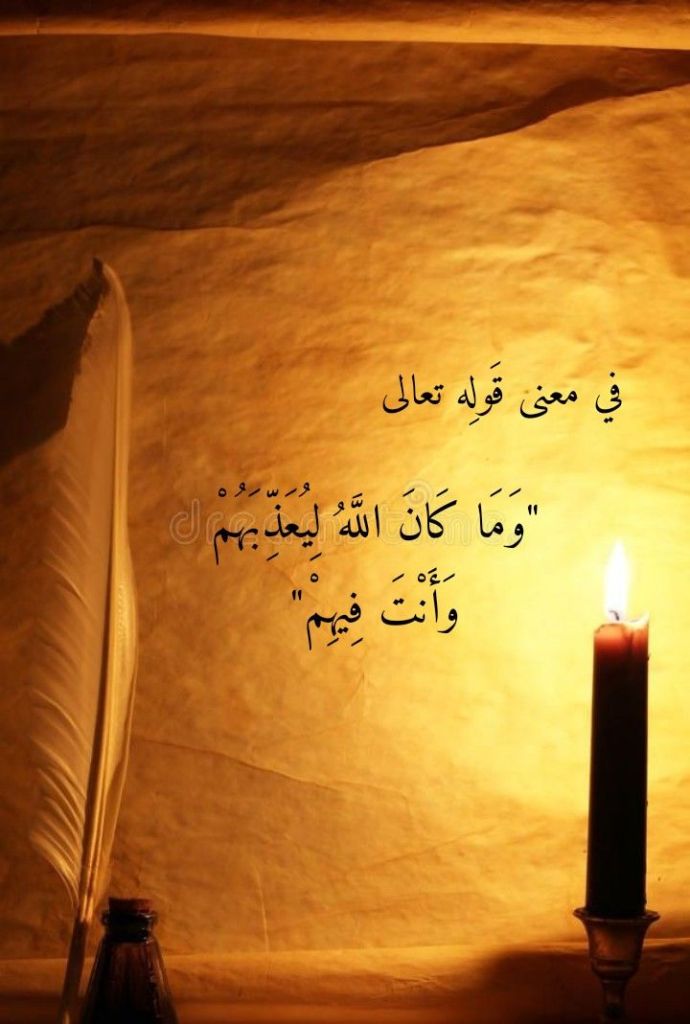 في معنى قَولِه تعالى
"وَمَا كَانَ اللَّهُ لِيُعَذِّبَهُمْ
وَأَنْتَ فِيهِمْ"
dreamstime